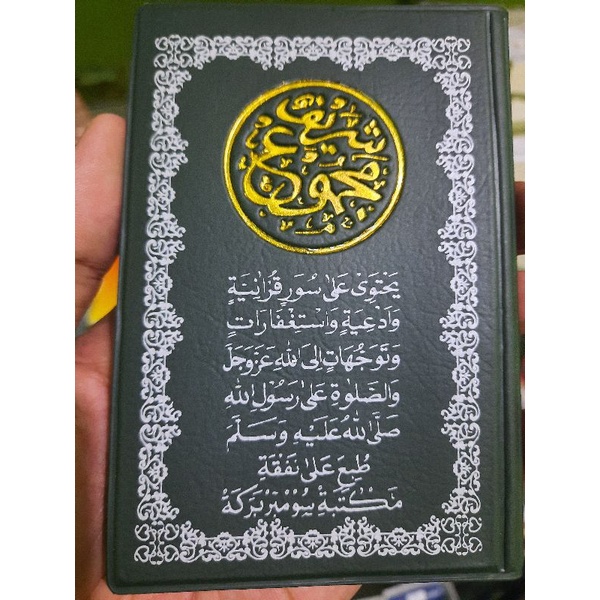 مجموع شريف
يَحْتَوِى عَلَى سُوَرٍ قُرْاٰنِيَةٍ
وَاَدْعِيَةٍ وَاسْتِغْفَارَاتٍ
وَتَوَجُّهَاتٍ اِلَى اللهِ عَزَّوَجَلَّ
وَالصَّلٰوةِ عَلَى رَسُوْلِ اللهِ
صَلَّى اللهُ عَلَيْهِ وَسَلَّمَ
طُبِعَ عَلَى نَفَقَةِ
مَكْتَبَةْ سُوْمْبَرْ بَرَكَهْ